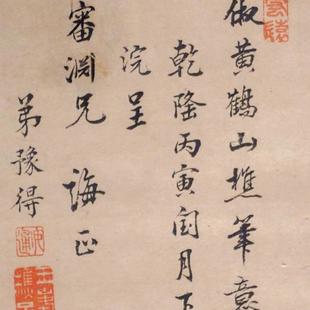 倣黃鶴山樵筆意
乾隆丙寅閏月下
浣呈
審淵兄 誨正
弟豫得